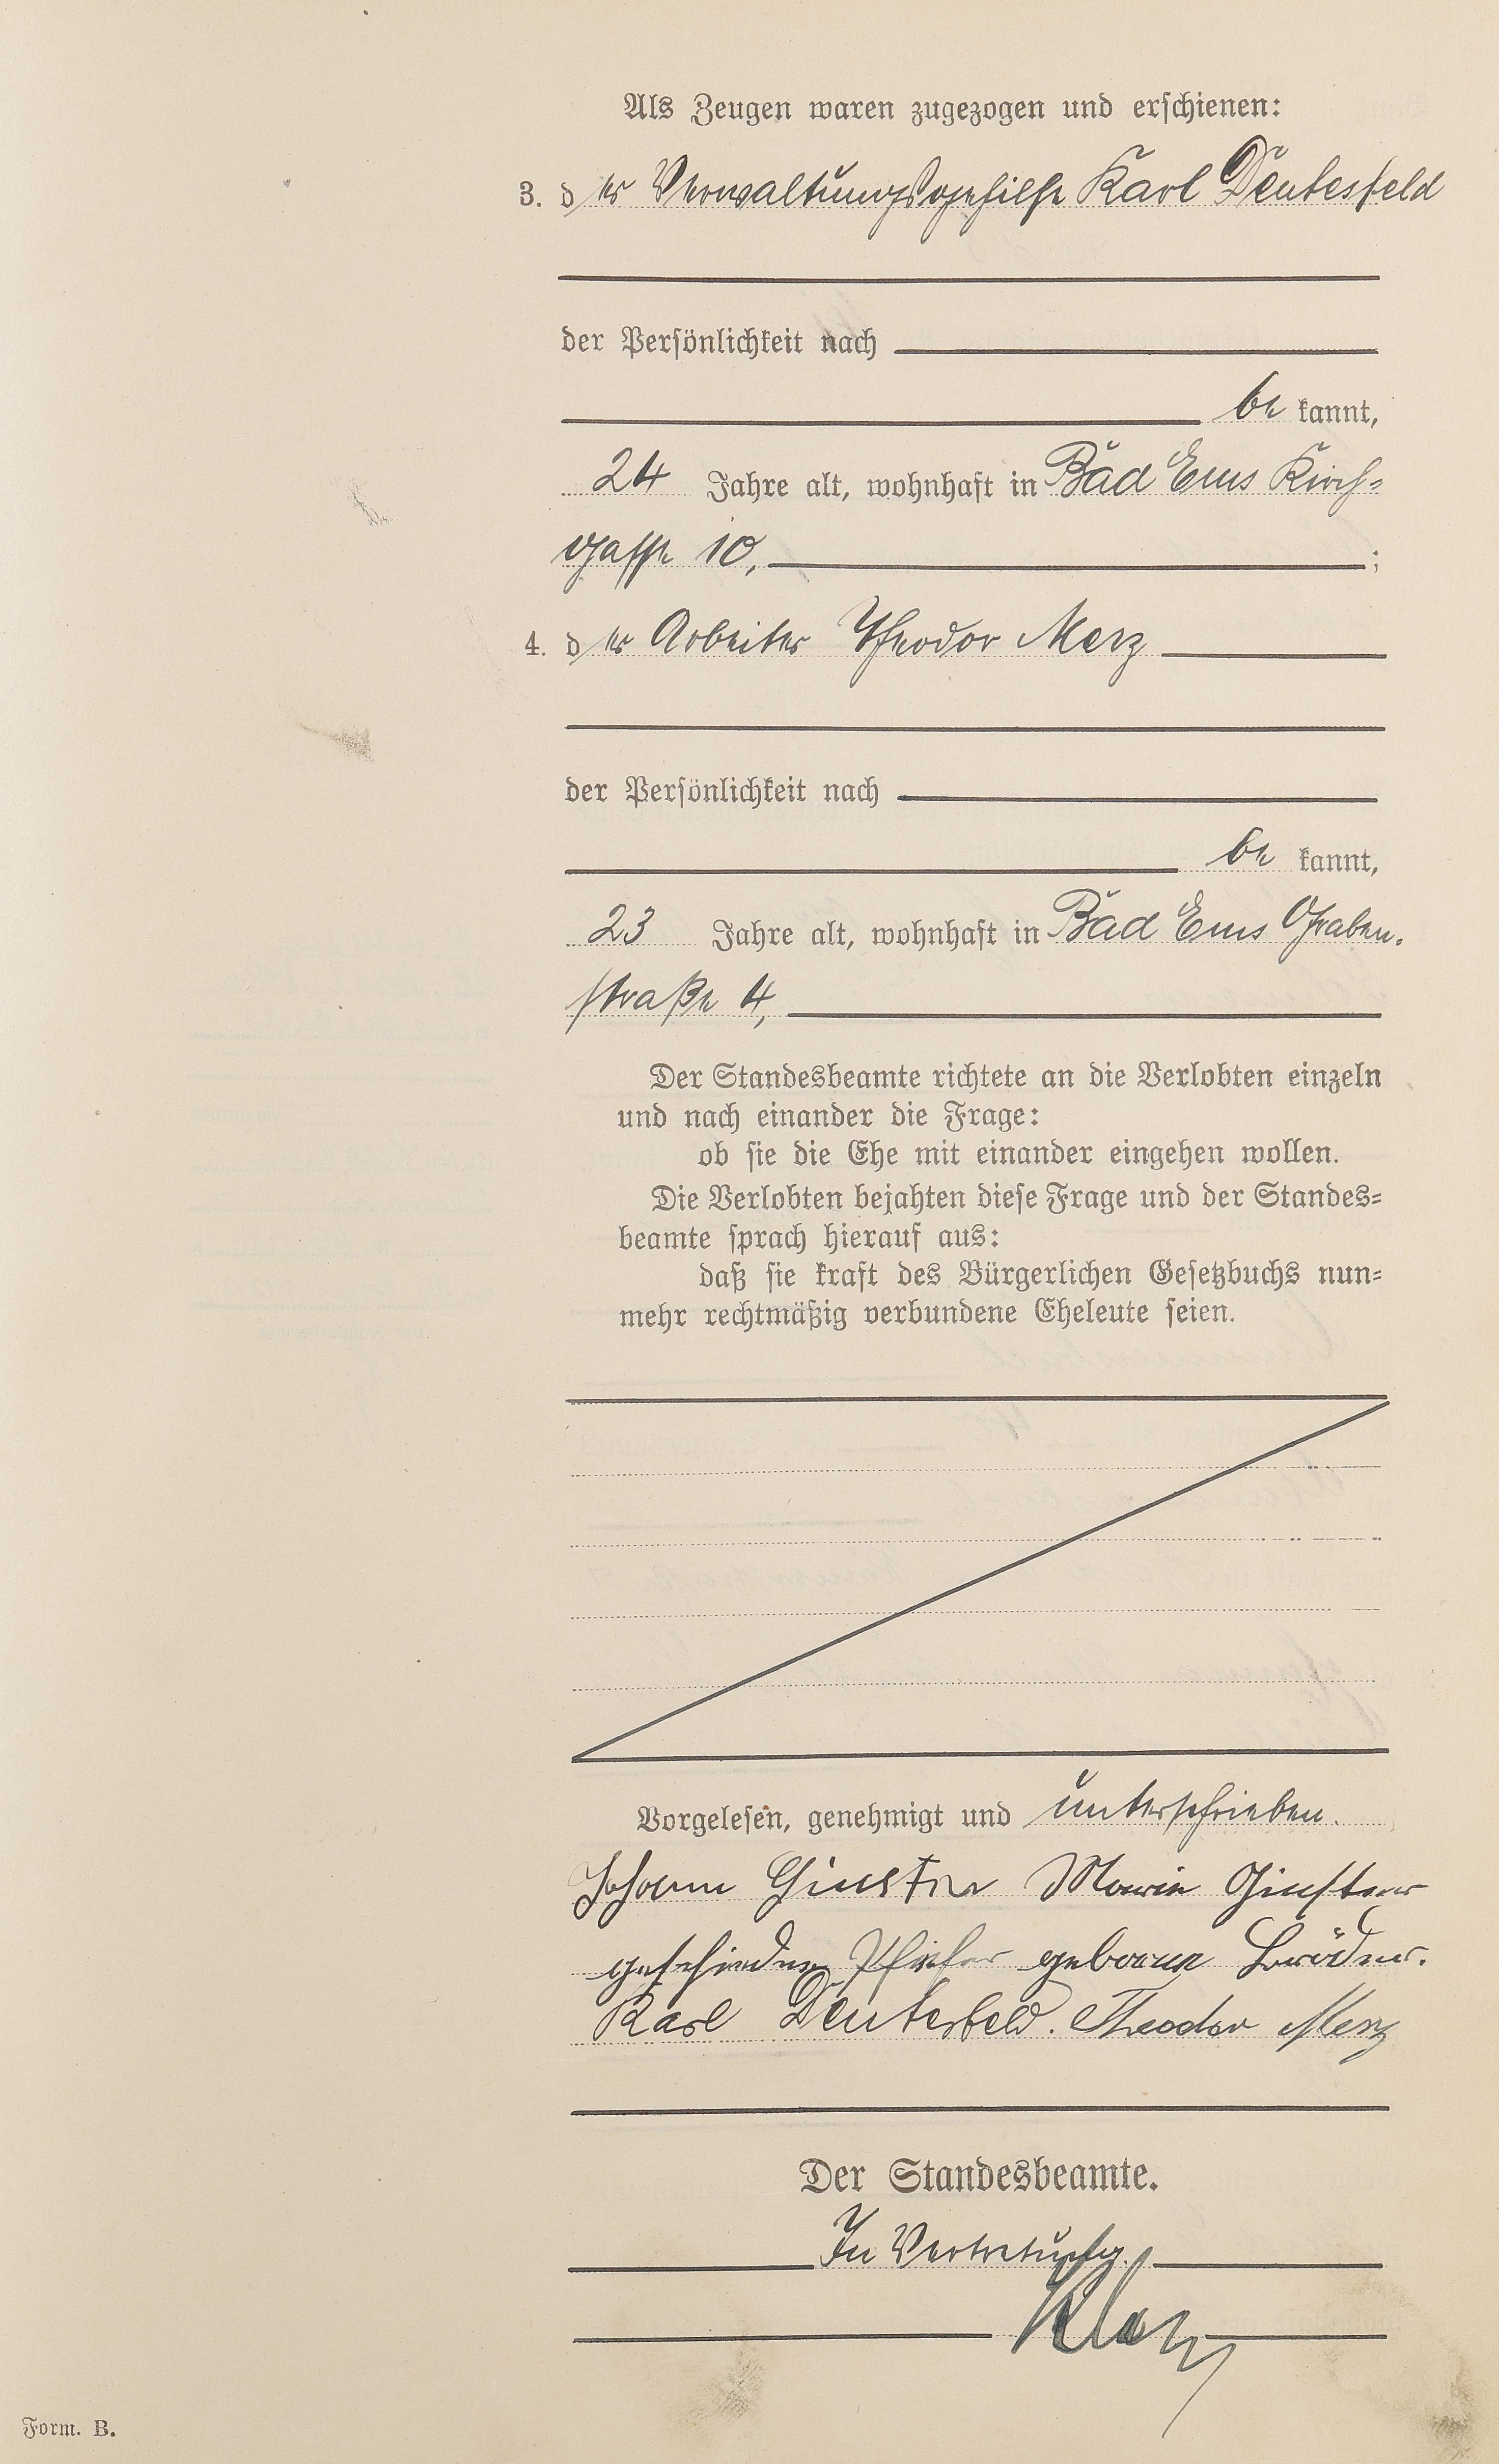 Als Zeugen waren zugezogen und erschienen:
3. der Verwaltungsgehilfe Karl Deutesfeld
der Persönlichkeit nach
be kannt,
24 Jahre alt, wohnhaft in Bad Ems Kirch-
gasse 10, ;
4. der Arbeiter Theodor Merz
der Persönlichkeit nach
be kannt,
23 Jahre alt, wohnhaft in Bad Ems Graben-
straße 4,
Der Standesbeamte richtete an die Verlobten einzeln
und nach einander die Frage:
ob sie die Ehe mit einander eingehen wollen.
Die Verlobten bejahten diese Frage und der Standes-
beamte sprach hierauf aus:
daß sie kraft des Bürgerlichen Gesetzbuchs nun-
mehr rechtmäßig verbundene Eheleute seien.
Vorgelesen, genehmigt und unterschrieben.
Johann Ginster Marie Ginster
geschiedene geborene
Karl Deutesfeld. Theodor Merz
Der Standesbeamte.
In Vertretung.
Form. B.